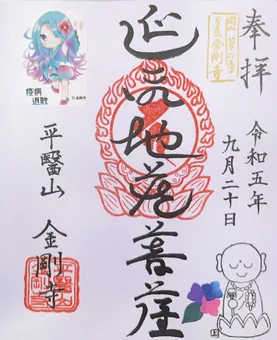 奉拝
令和五年
九月二十日
延命地蔵菩薩
疫病
退散
平醫山
金剛寺